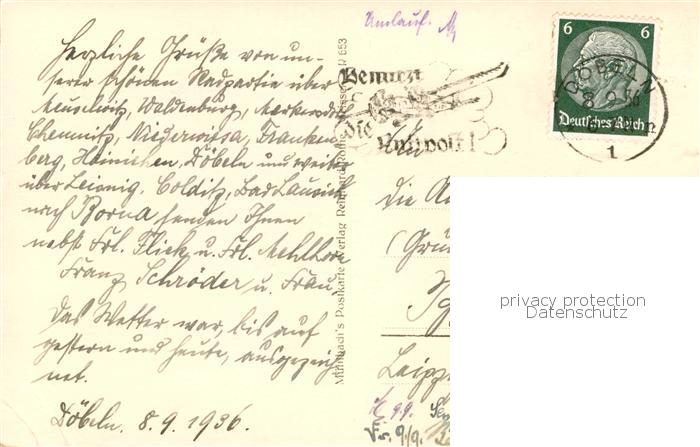 Herzliche Grüße von un-
serer schönen Radpartie über
Meuselwitz, Waldenburg, Merkendorf
Chemnitz, Niederwiesa, Franken-
berg, Hainichen, Döbeln und weiter
über Leisnig, Colditz, Bad Lausick
nach Borna senden Ihnen
nebst Frl. Flick u. Frl. Mehlhorn
Franz Schröder u. Frau.
Das Wetter war, bis auf
gestern und heute, ausgezeich-
net.
Döbeln. 8.9.1936.
Mühlbach's Postkarte Verlag Reinhard R 653
Umlauf.
Benutzt
die
Luftpost!
6 6
Deutsches Reich
DÖBELN
8.9.36
1
die
(Grü
Leipz
99
9/9.
privacy protection
Datenschutz